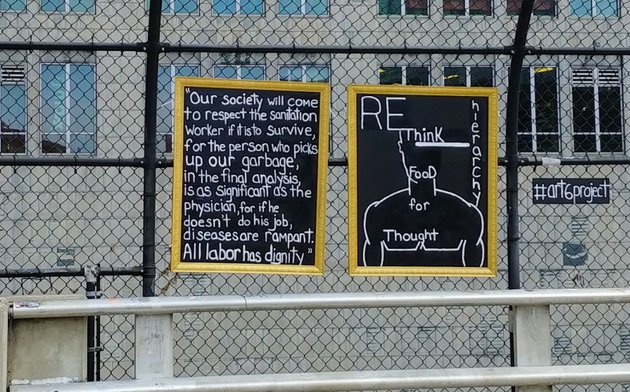 "Our society will come
to respect the sanitation
worker if it is to survive,
for the person who picks
up our garbage,
in the final analysis,
is as significant as the
physician, for if he
doesn't do his job,
diseases are rampant.
All labor has dignity"
RE
Think
hierarchy
FooD
for
Thought
#art6project